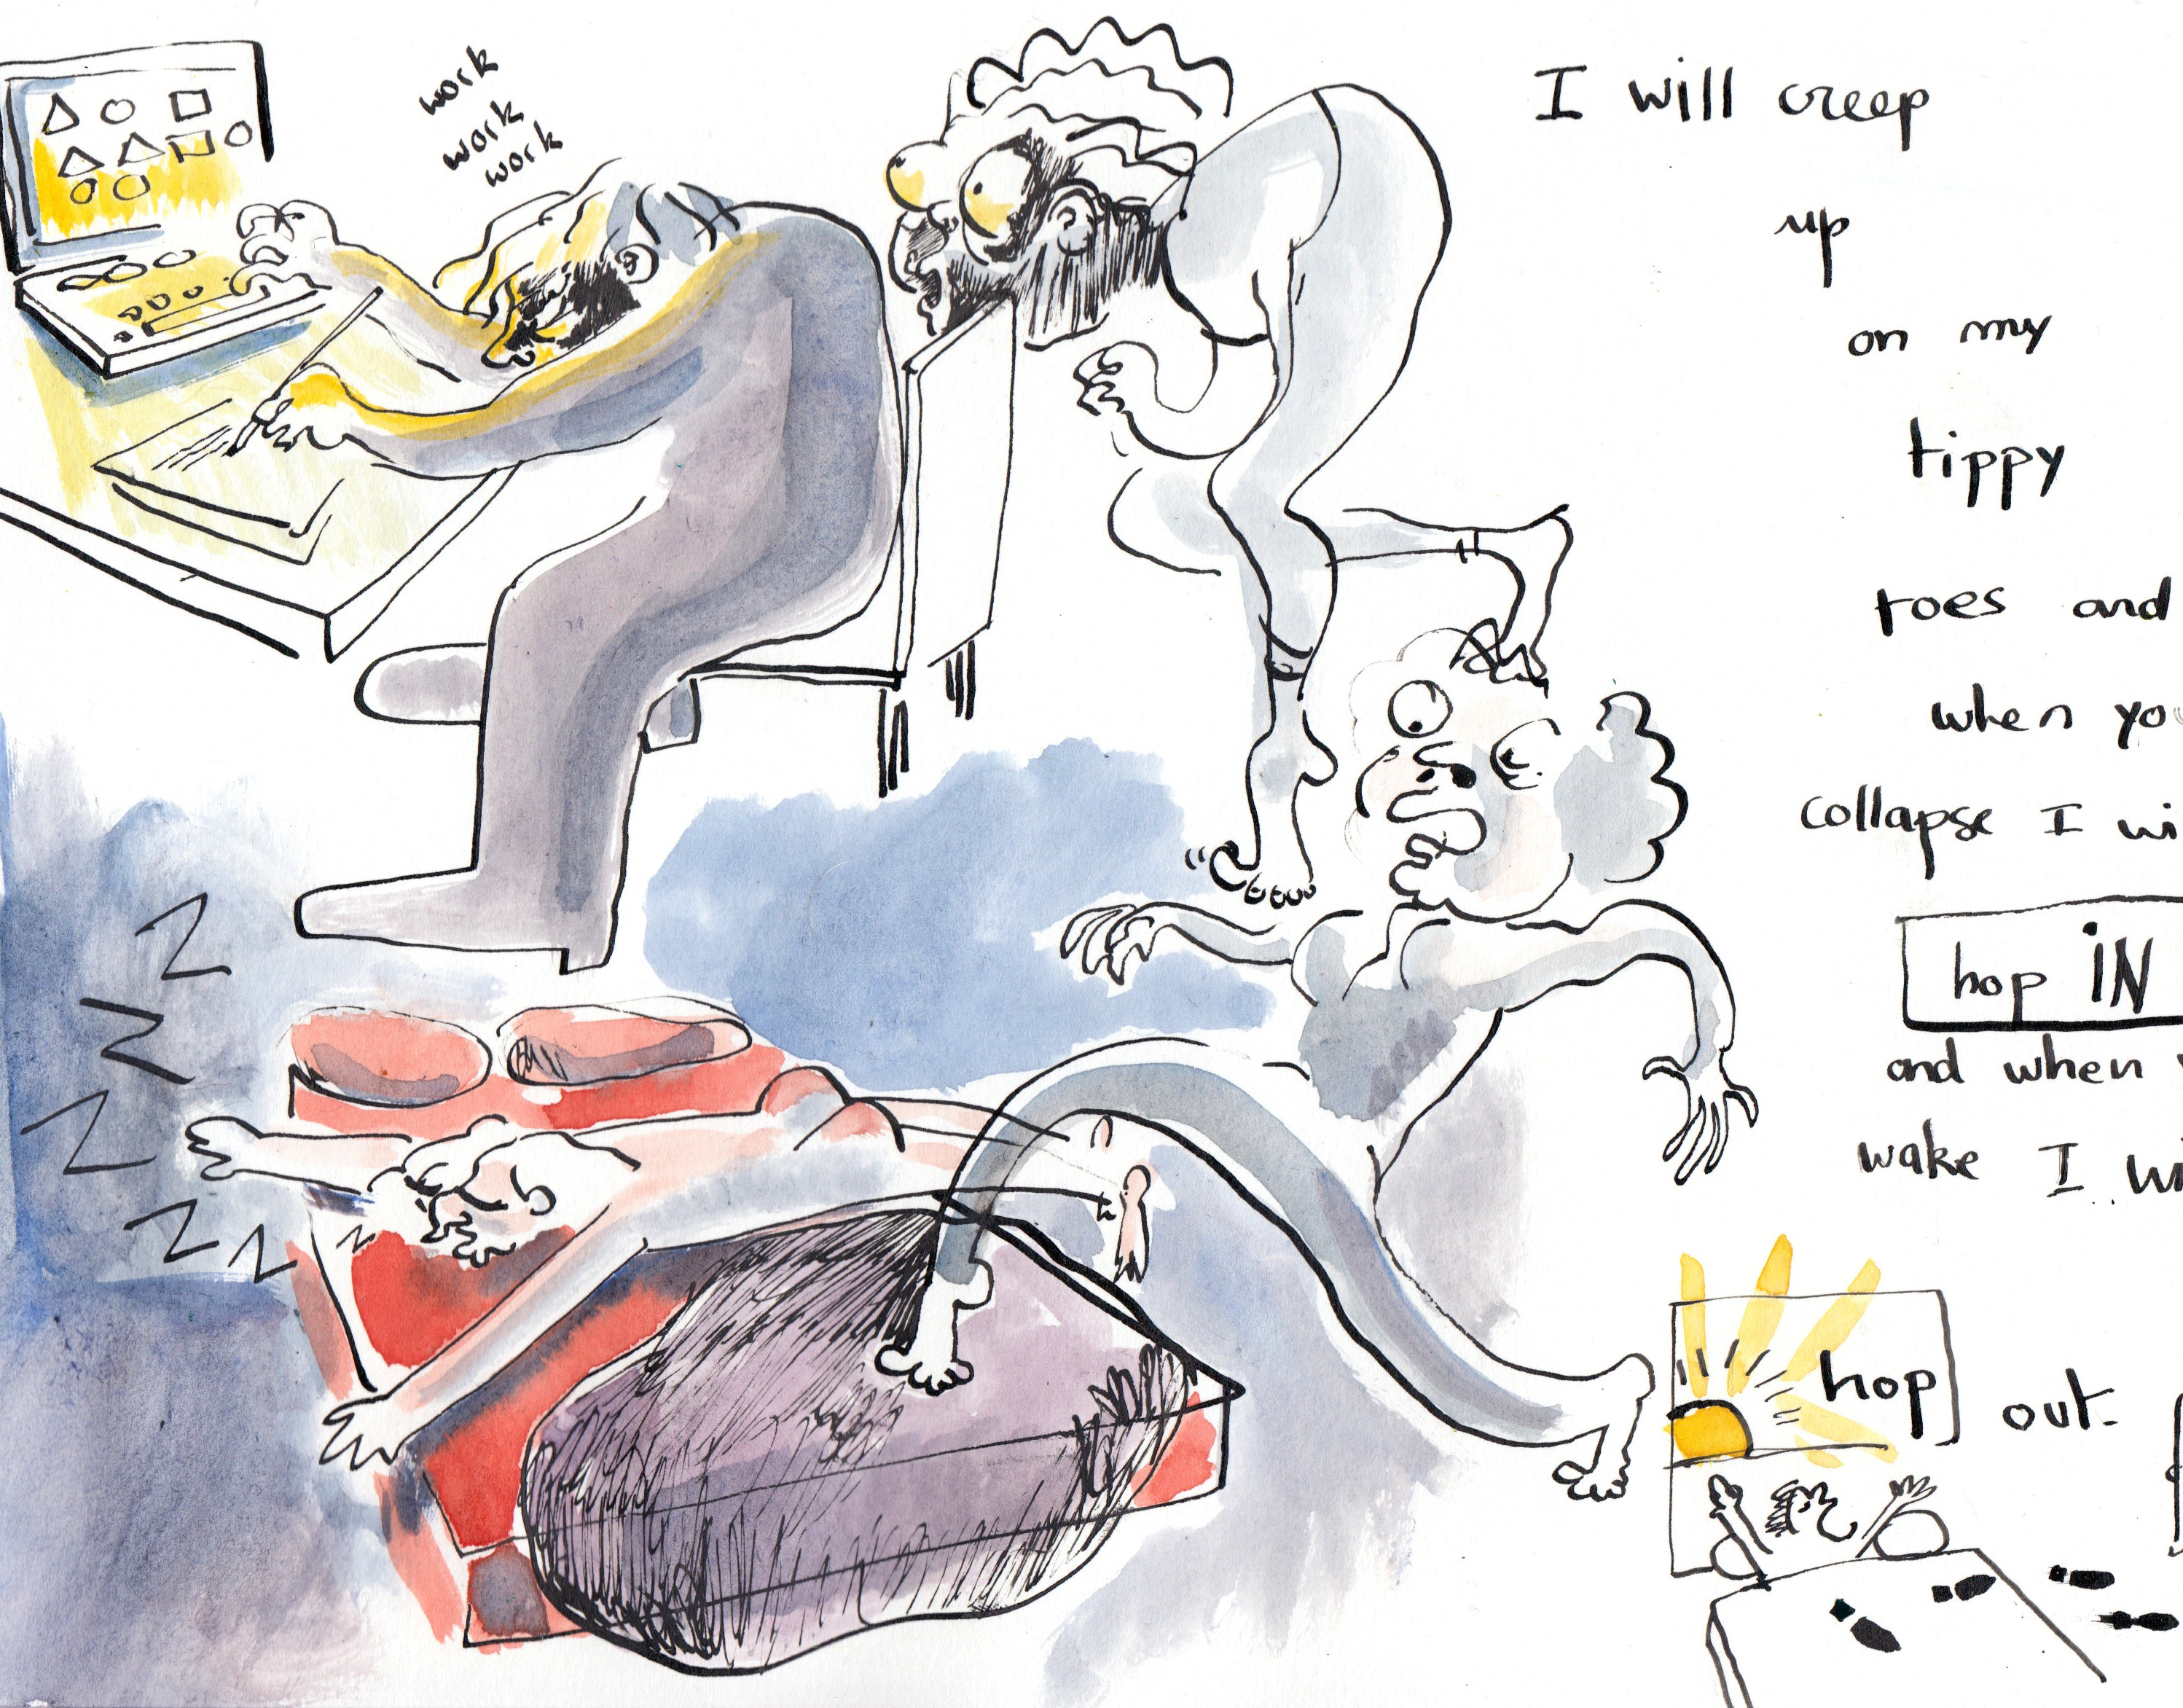 work
work
work
I will creep
up
on my
tippy
toes and
when yo
collapse I wi
hop IN
and when
wake I wi
hop out.
Z
Z
Z
Z
Z